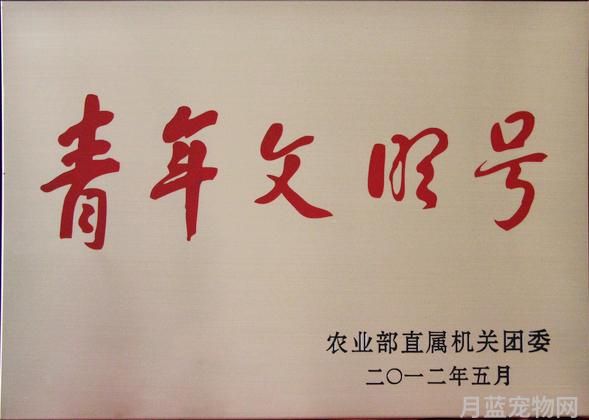 青年文明号
农业部直属机关团委
二〇一二年五月
月蓝宠物网